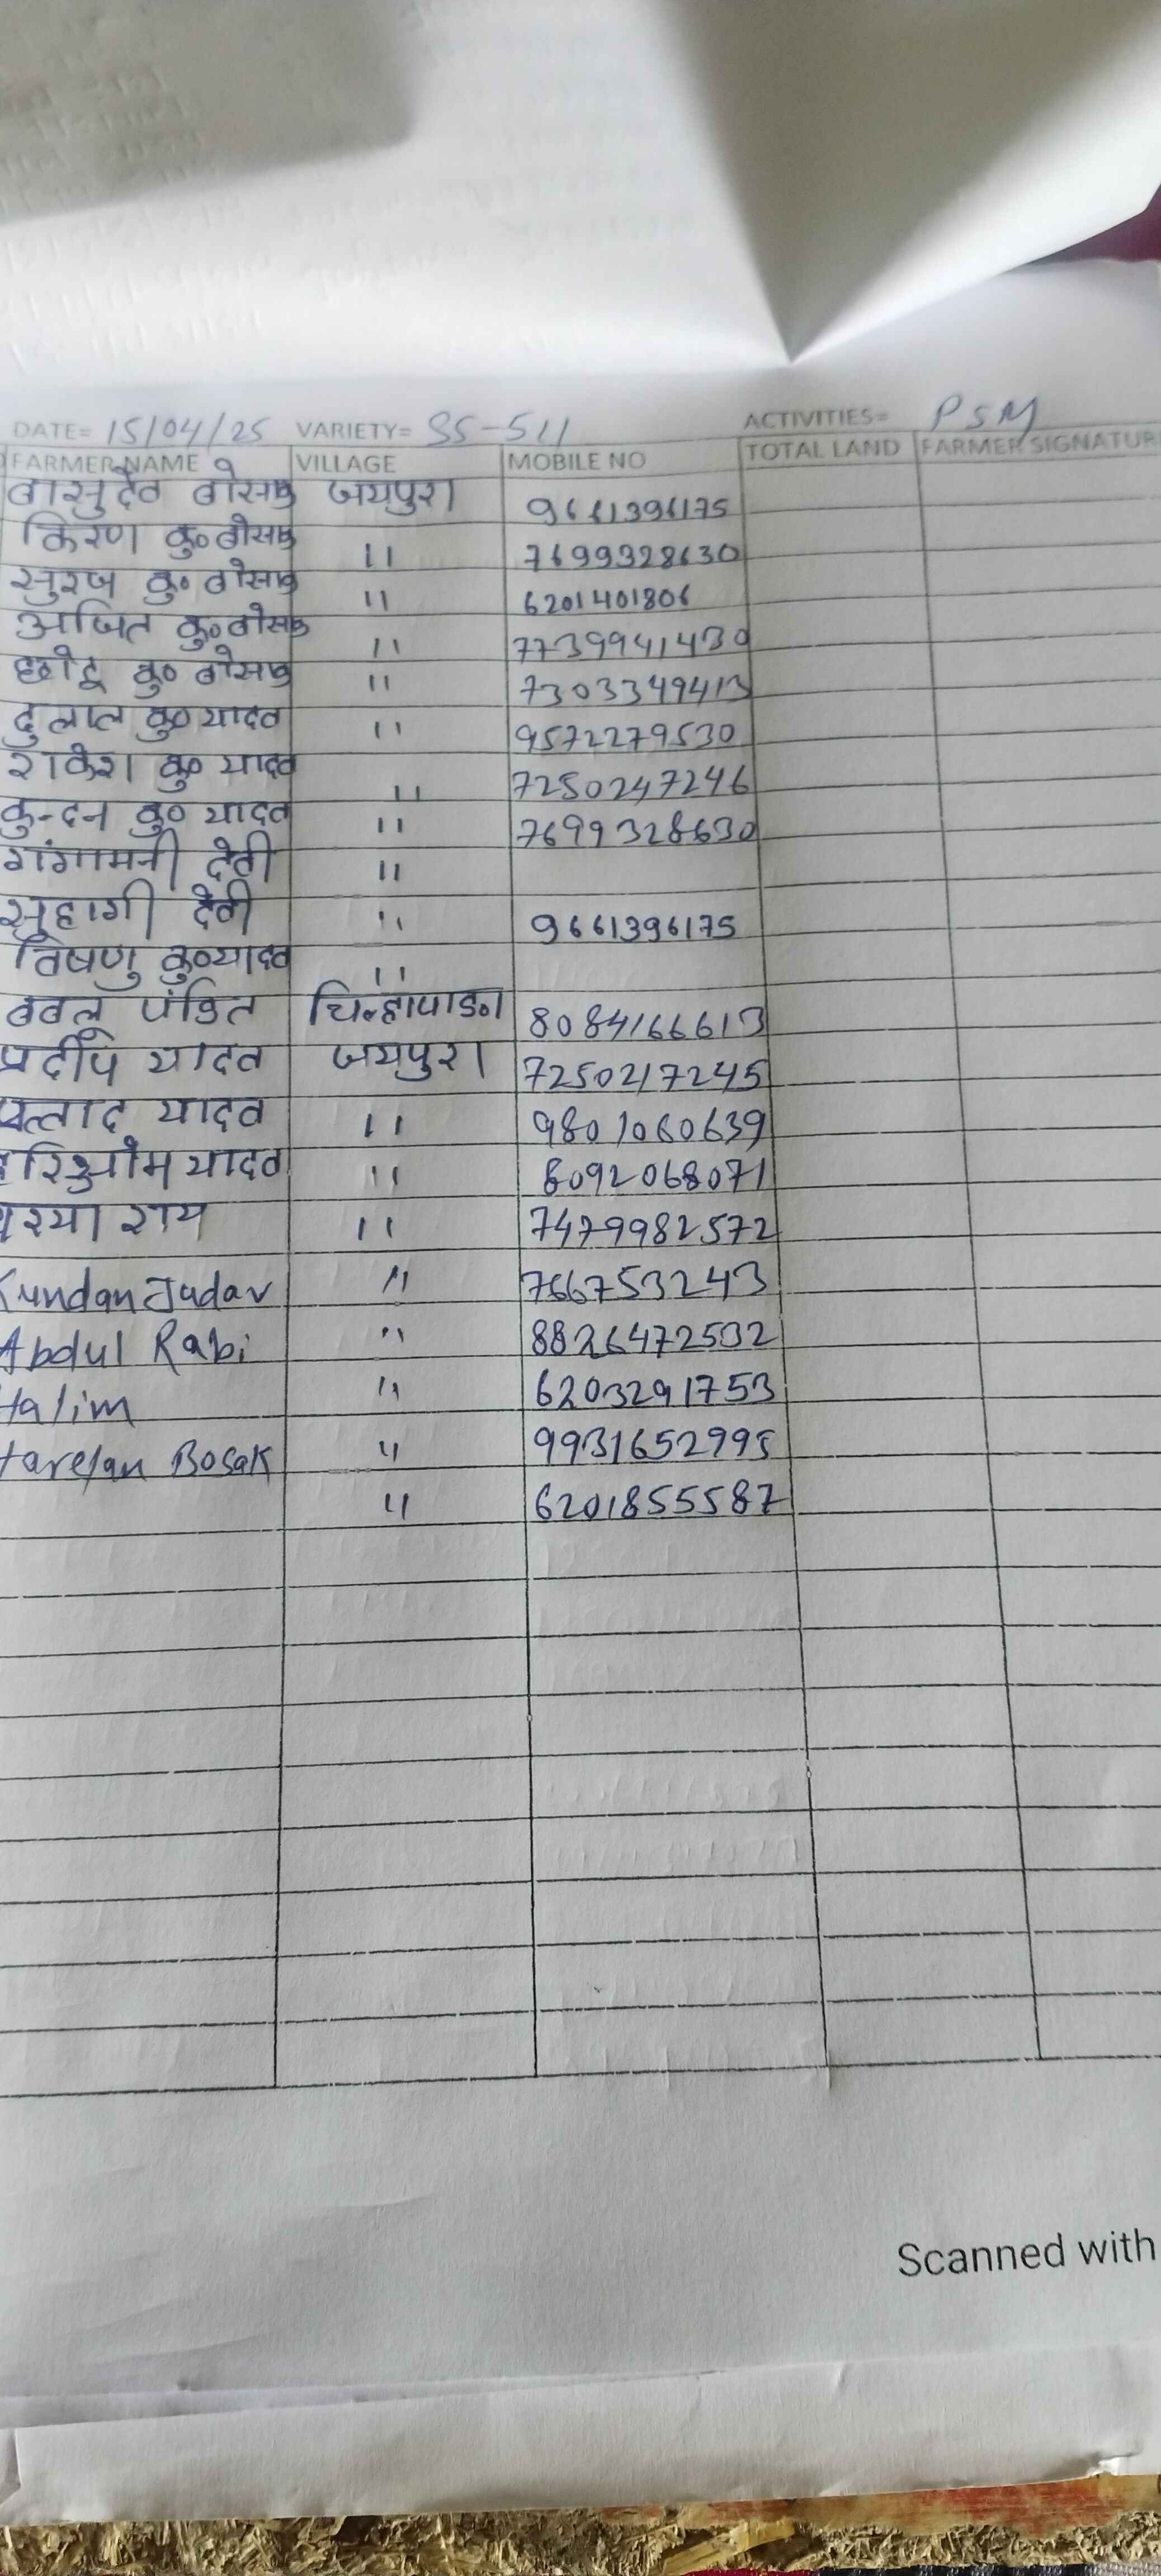 DATE= 15/04/25 VARIETY= SS-511 ACTIVITIES= PSM
FARMER NAME VILLAGE MOBILE NO TOTAL LAND FARMER SIGNATUR
बासुदेव बोसाक जयपुरा 9661396175
किरण कु० बोसाक " 7699328630
सुरज कु० बोसाक " 6201401806
अजित कु० बोसाक " 7739941430
छोटू कु० बोसाक " 7303349413
दुलाल कु० यादव " 9572279530
राकेश कु० यादव " 7250247246
कुन्दन कु० यादव " 7699328630
गंगामनी देवी "
सुहागी देवी " 9661396175
विषणु कु० यादव "
बबलू पंडित 8084166613
प्रदीप यादव जयपुरा 7250217245
यादव " 9801060639
हरिओम यादव " 8092068071
राय " 7479982572
Kundan Jadav " 766753243
Abdul Rabi " 8826472532
Halim " 6203291753
Bosak " 9931652995
" 6201855587
Scanned with